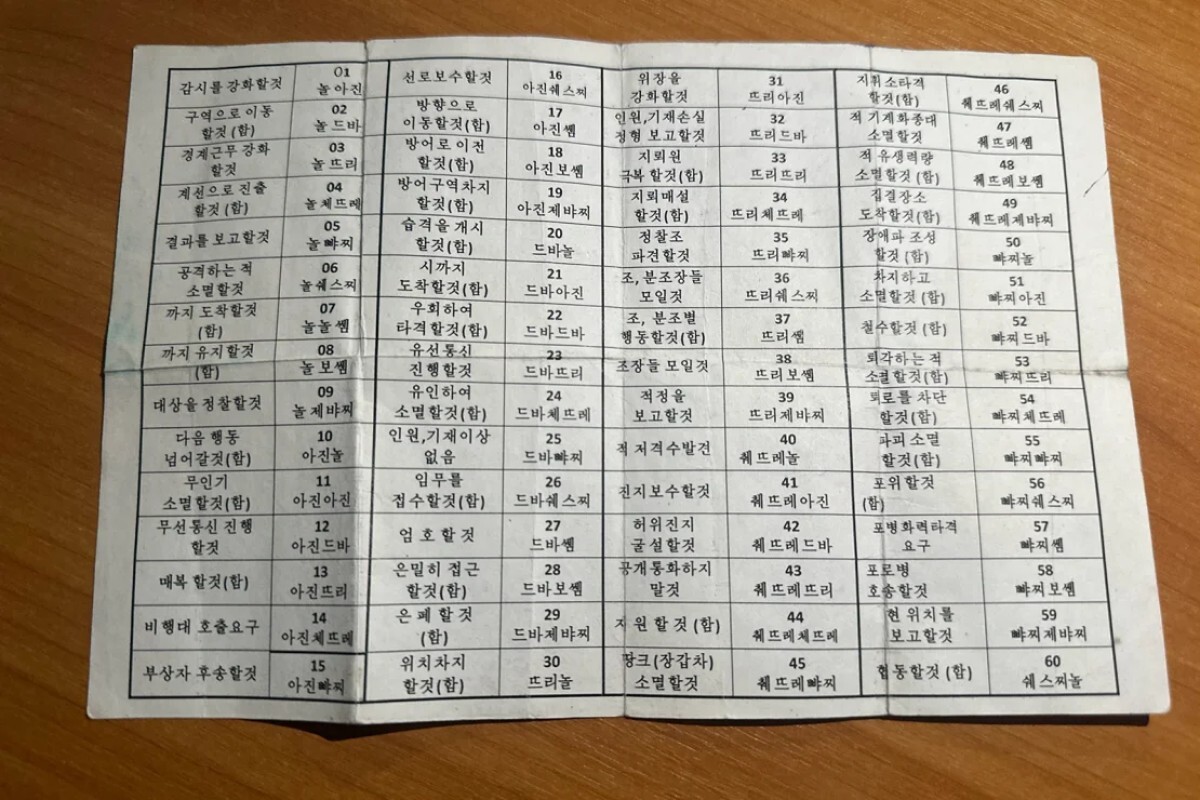 감시를 강화할것
01
놀아진
구역으로 이동
할것(함)
02
놀드바
경계근무 강화
할것
03
놀뜨리
계선으로 진출
할것(함)
04
놀체뜨레
결과를 보고할것
05
놀뺘찌
공격하는 적
소멸할것
06
놀쉐스찌
까지 도착할것
(함)
07
놀놀쎔
까지 유지할것
(함)
08
놀보쎔
대상을 정찰할것
09
놀제뱌찌
다음 행동
넘어갈것(함)
10
아진놀
무인기
소멸할것(함)
11
아진아진
무선통신 진행
할것
12
아진드바
매복 할것(함)
13
아진뜨리
비행대 호출요구
14
아진체뜨레
부상자 후송할것
15
아진뺘찌
선로보수할것
16
아진쉐스찌
방향으로
이동할것(함)
17
아진쎔
방어로 이전
할것(함)
18
아진보쎔
방어구역차지
할것(함)
19
아진제뱌찌
습격을 개시
할것(함)
20
드바놀
시까지
도착할것(함)
21
드바아진
우회하여
타격할것(함)
22
드바드바
유선통신
진행할것
23
드바뜨리
유인하여
소멸할것(함)
24
드바체뜨레
인원,기재이상
없음
25
드바뺘찌
임무를
접수할것(함)
26
드바쉐스찌
엄호할것
27
드바쎔
은밀히 접근
할것(함)
28
드바보쎔
은폐할것
(함)
29
드바제뱌찌
위치차지
할것(함)
30
뜨리놀
위장을
강화할것
31
뜨리아진
인원,기재손실
정형 보고할것
32
뜨리드바
지뢰원
극복 할것(함)
33
뜨리뜨리
지뢰매설
할것(함)
34
뜨리체뜨레
정찰조
파견할것
35
뜨리뺘찌
조, 분조장들
모일것
36
뜨리쉐스찌
조, 분조별
행동할것(함)
37
뜨리쎔
조장들 모일것
38
뜨리보쎔
적정을
보고할것
39
뜨리제뱌찌
적 저격수발견
40
췌뜨레놀
진지보수할것
41
췌뜨레아진
허위진지
굴설할것
42
췌뜨레드바
공개통화하지
말것
43
췌뜨레뜨리
지원할것(함)
44
췌뜨레체뜨레
땅크(장갑차)
소멸할것
45
췌뜨레뺘찌
지휘소타격
할것(함)
46
췌뜨레쉐스찌
적 기계화종대
소멸할것
47
췌뜨레쎔
적 유생력량
소멸할것(함)
48
췌뜨레보쎔
집결장소
도착할것(함)
49
췌뜨레제뱌찌
장애파 조성
할것(함)
50
뺘찌놀
차지하고
소멸할것(함)
51
뺘찌아진
철수할것(함)
52
뺘찌드바
퇴각하는 적
소멸할것(함)
53
뺘찌뜨리
퇴로를 차단
할것(함)
54
뺘찌체뜨레
파괴소멸
할것(함)
55
뺘찌뺘찌
포위할것
(함)
56
뺘찌쉐스찌
포병화력타격
요구
57
뺘찌쎔
포로병
호송할것
58
뺘찌보쎔
현 위치를
보고할것
59
뺘찌제뱌찌
협동할것(함)
60
쉐스찌놀